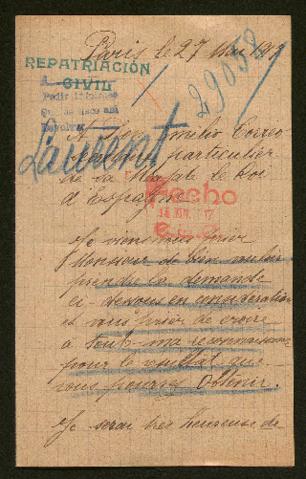 Paris le 27 Mai 1917
REPATRIACIÓN
CIVIL
29052
Laurent
Emilio
particulier
de sa Majesté le Roi
d'Espagne
Hecho
14 JUN. 17
Je viens vous prier
Monsieur de bien vouloir
prendre la demande
ci-dessous en considération
et vous prier de croire
à toute ma reconnaissance
pour le résultat que
vous pourrez obtenir.
Je serai très heureuse de